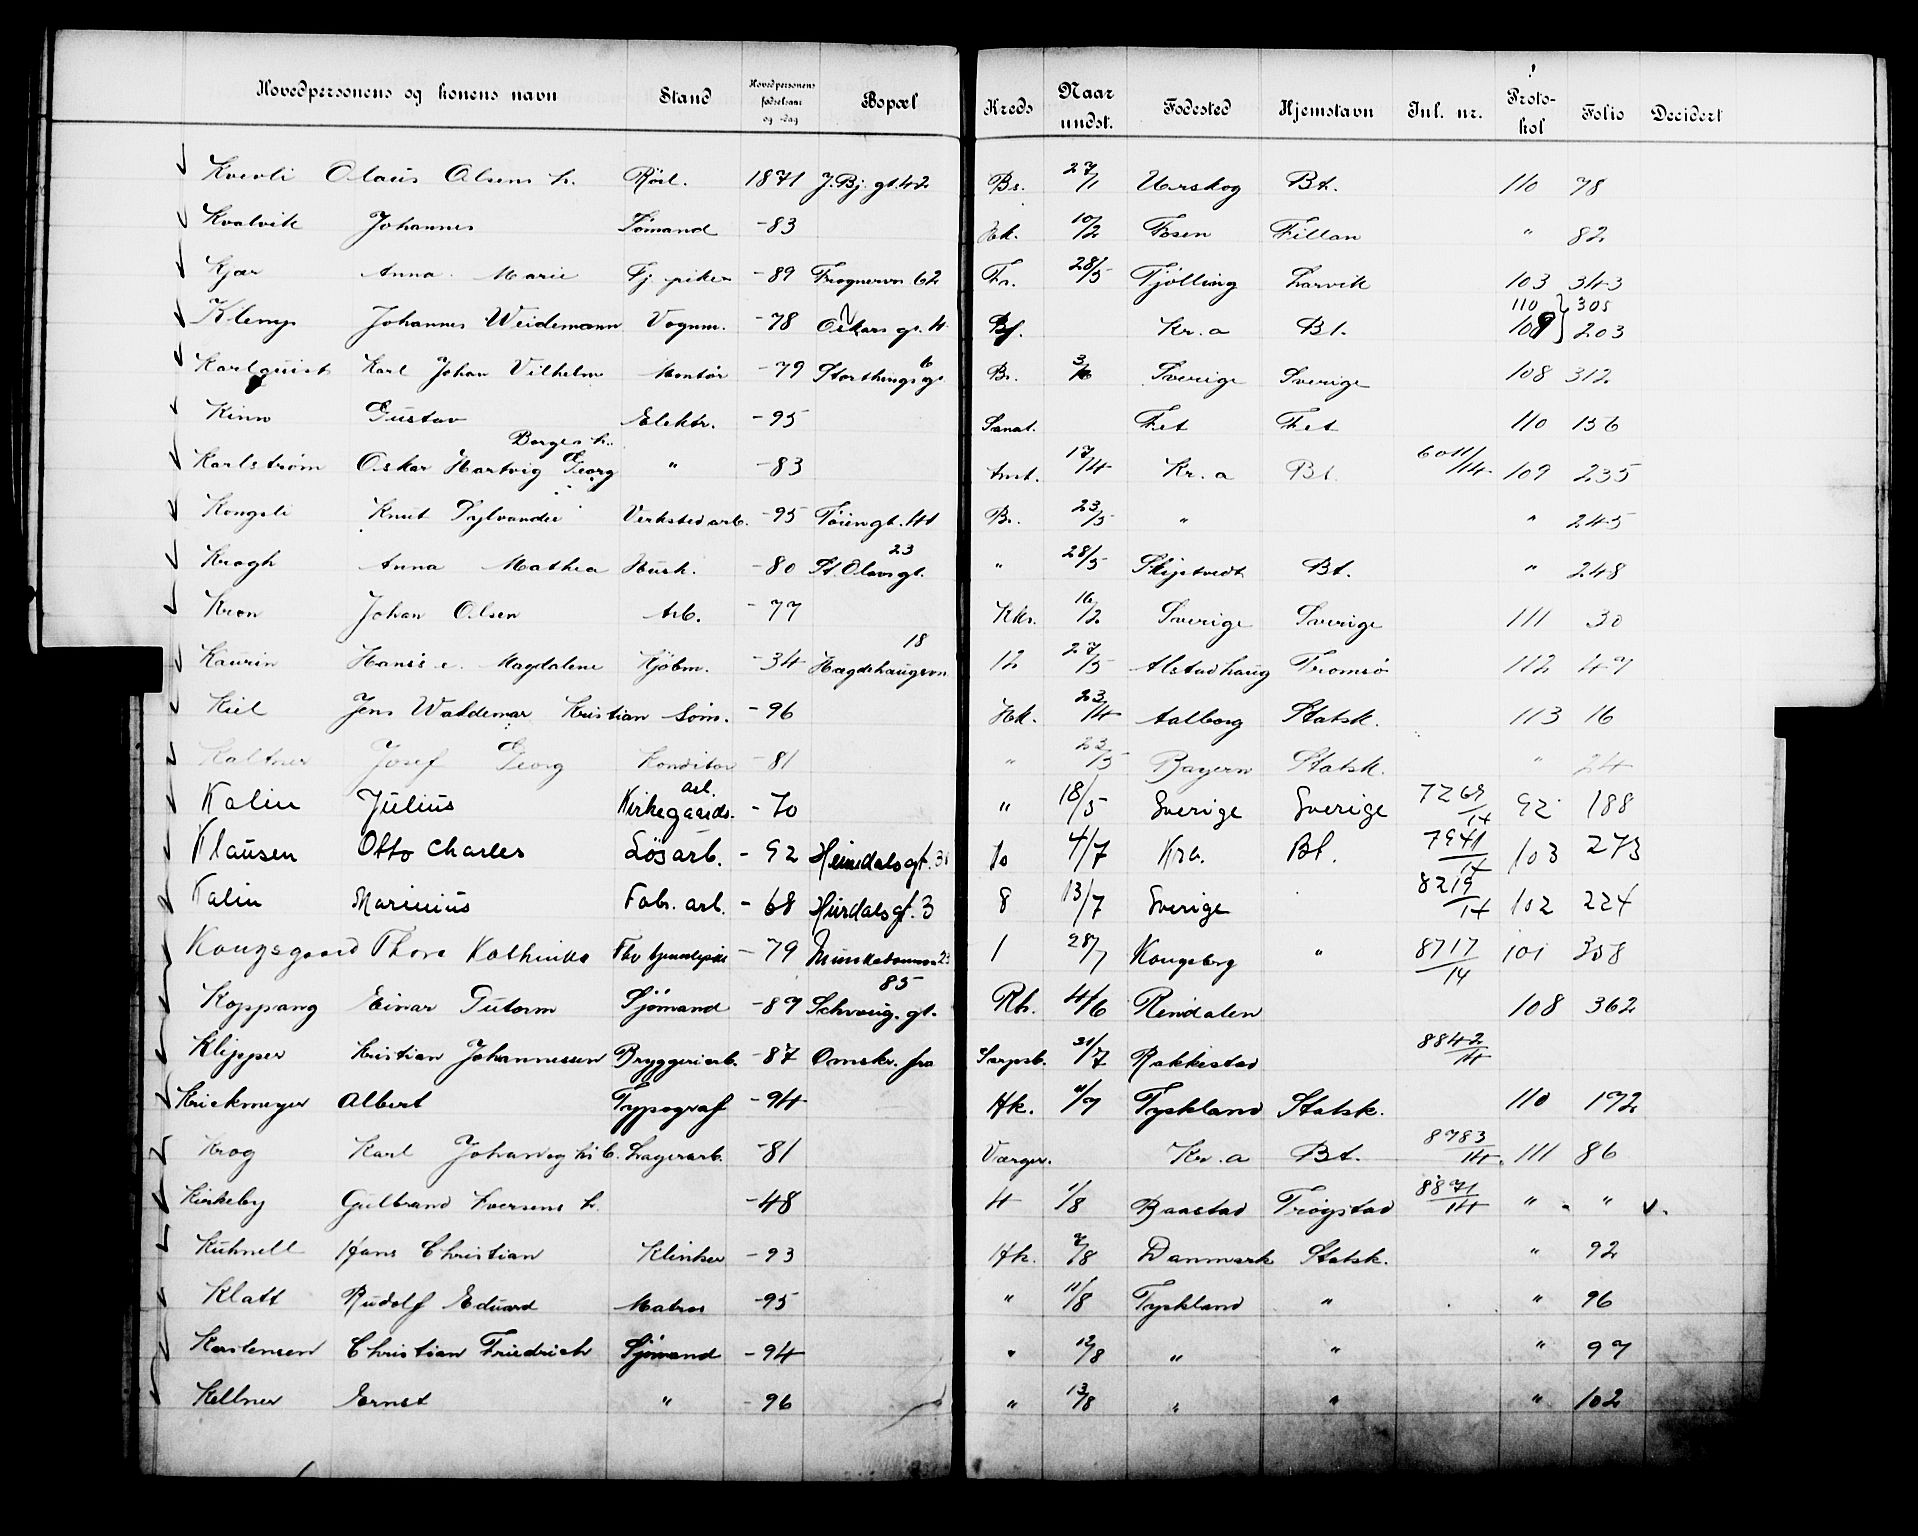 Hovedpersonens og konens navn Stand Hovedpersonens fødselsaar og -dag Bopæl Kreds Naar undst. Fødested Hjemstavn Inl. nr. Protokol Folio Decidert
Kvevli Olaus Olsens h. 1871 J. Bj. gt. 42 Bs. 27/1 Urskog Bt. 110 78
Kvalvik Johannes Sømand -83 Hk. 10/2 Fosen Fillan " 82
Kjær Anna Marie Tj. pike -89 Frognervn 62 Fr. 28/5 Tjølling Larvik 103 343
Klemp Johannes Weidemann Vognm. -78 Oskars gt. 4 Kr.a Bt. 110 } 305
109 } 203
Karlquist Karl Johan Vilhelm Montør -79 Storthingsgt 6 Br. Sverige Sverige 108 312
Kinn Gustav Elektr. -95 Sanat. Fet Fet 110 156
Karlstrøm Oskar Hartvig Georg Borges h. " -83 Amt. 17/4 Kr.a Bt. 6011/14 109 235
Kongsli Knut Sylvander Verksted arb. -95 Tøiengt. 44 Br. 23/5 " " 245
Krogh Anna Mathea Hush. -80 St. Olavsgt. 23 " 28/5 Skiptvedt Bt. " 248
Kron Johan Olsen Arb. -77 Kks. 16/2 Sverige Sverige 111 30
Kaurin Hans's e. Magdalene Kjøbm. -34 Hægdehaugsvn 18 12 27/5 Alstadhaug Tromsø 112 47
Kiel Jens Waldemar Kristian Søm. -96 Hk. 23/4 Aalborg Statsk. 113 16
Kaltner Josef Georg Konditor -81 " 23/5 Bayern Statsk. " 24
Kalin Julius Kirkegaards. arb. -70 " 18/5 Sverige Sverige 7269/14 92 188
Klausen Otto Charles Løsarb. -92 Heimdalsgt. 31 10 4/7 Kra. Bt. 7941/14 103 273
Kalin Marinius Fabr. arb. -68 Hurdalsgt. 3 8 13/7 Sverige 8219/14 102 224
Kongsgaard Thora Kathinka -79 1 28/7 Kongsberg " 8717/14 101 358
Koppang Einar Gutorm Sjömand -89 Schweig. gt. 85 Rh. 4/6 Rendalen 108 362
Klipper Kristian Johannessen Bryggeriarb. -87 Omskr. fra Sarpsb. 31/7 Rakkestad 8842/14
Krickmeyer Albert Typograf -94 Hk. Tyskland Statsk. 110 192
Krog Karl Johan Lagerarb. -81 Værger. Kr.a Bt. 8783/14 111 86
Kirkeby Gulbrand Iversens h. -48 4 1/8 Baastad Trøgstad 8871/14 " " v.
Kuhnell Hans Christian Klinker -93 Hk. 7/8 Danmark Statsk. " 92
Klatt Rudolf Eduard Matros -95 " 11/8 Tyskland " " 96
Karstensen Christian Friedrich Sjömand -94 " 12/8 " " " 97
Kellner Ernst " -96 " 13/8 " " " 102